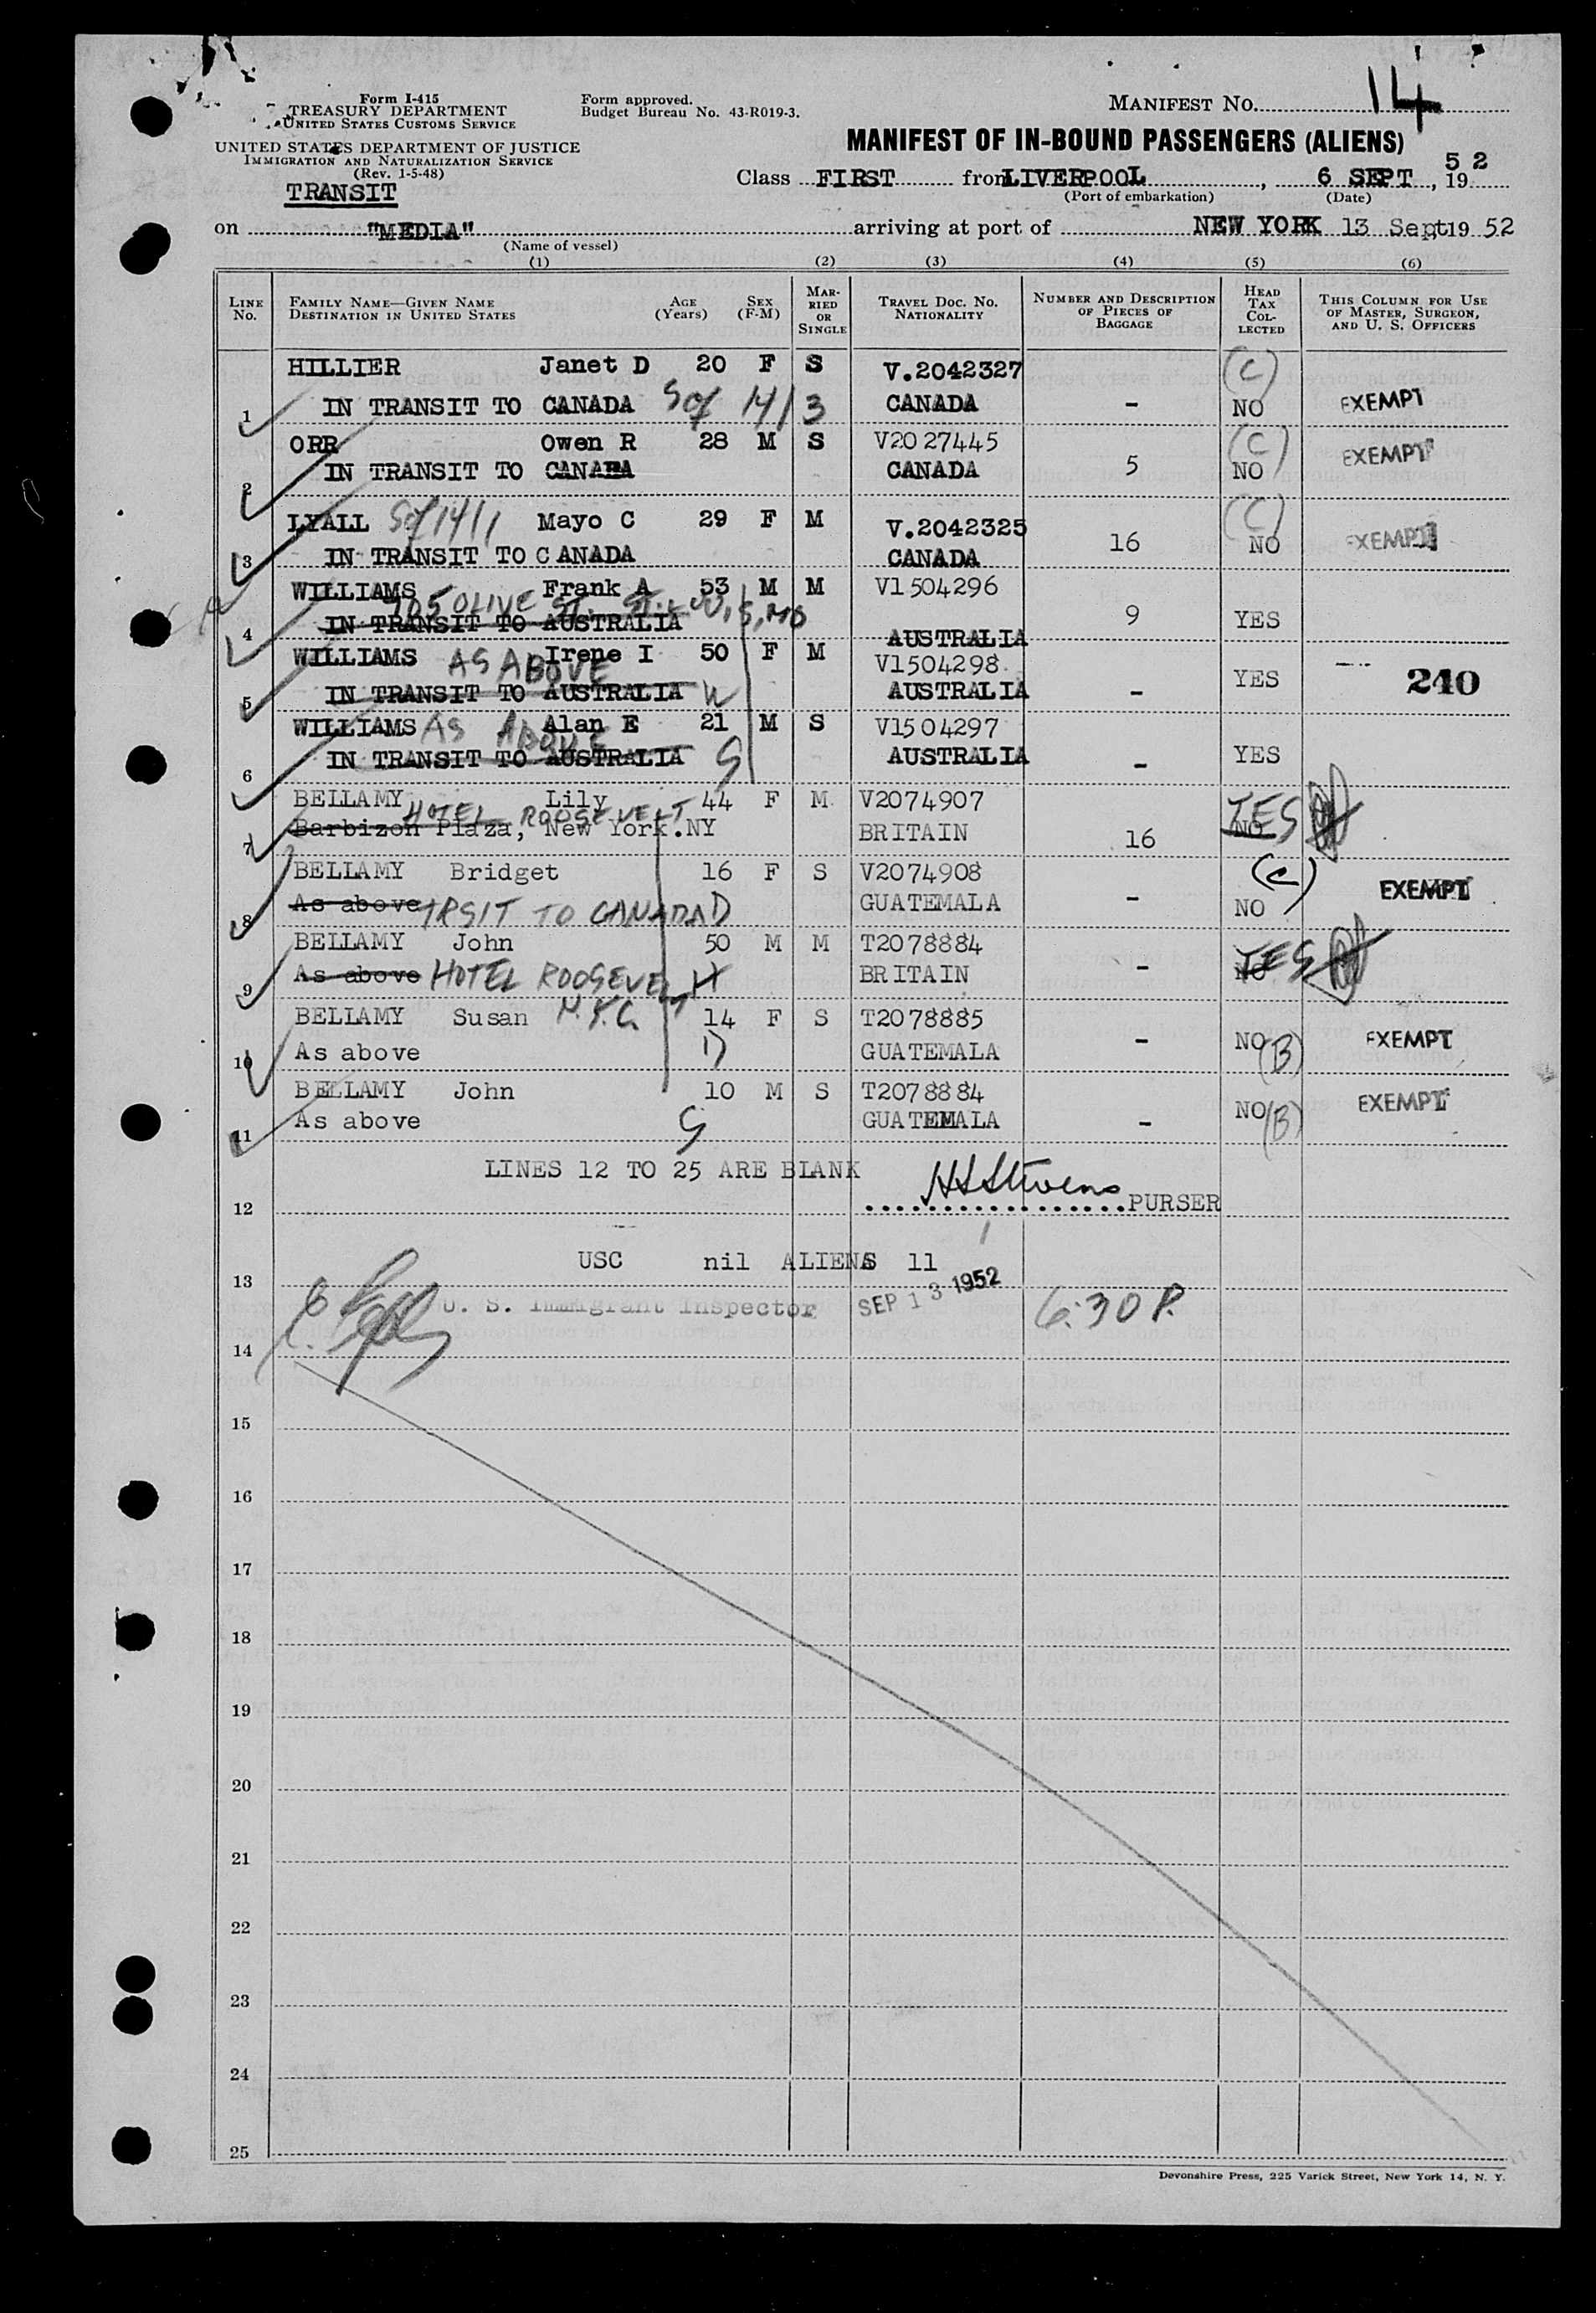 Form I-415
TREASURY DEPARTMENT
UNITED STATES CUSTOMS SERVICE
UNITED STATES DEPARTMENT OF JUSTICE
IMMIGRATION AND NATURALIZATION SERVICE
(Rev. 1-5-48)
TRANSIT
Form approved.
Budget Bureau No. 43-R019-3.
MANIFEST NO. 14
MANIFEST OF IN-BOUND PASSENGERS (ALIENS)
Class FIRST from LIVERPOOL, 6 SEPT, 1952
(Port of embarkation) (Date)
on "MEDIA" arriving at port of NEW YORK 13 Sept 19 52
(Name of vessel)
(1) (2) (3) (4) (5) (6)
LINE NO. FAMILY NAME—GIVEN NAME DESTINATION IN UNITED STATES AGE (Years) SEX (F-M) MARRIED OR SINGLE TRAVEL DOC. NO. NATIONALITY NUMBER AND DESCRIPTION OF PIECES OF BAGGAGE HEAD TAX COLLECTED THIS COLUMN FOR USE OF MASTER, SURGEON, AND U. S. OFFICERS
HILLIER Janet D 20 F S V.2042327 (C)
1 IN TRANSIT TO CANADA 14/3 CANADA - NO EXEMPT
ORR Owen R 28 M S V2027445 (C)
2 IN TRANSIT TO CANADA CANADA 5 NO EXEMPT
LYALL 14/1 Mayo C 29 F M V.2042325 (C)
3 IN TRANSIT TO CANADA CANADA 16 NO EXEMPT
WILLIAMS Frank A 53 M M V1504296
705 OLIVE ST. ST. LOUIS, MO
4 IN TRANSIT TO AUSTRALIA AUSTRALIA 9 YES
WILLIAMS AS ABOVE Irene I 50 F M V1504298
5 IN TRANSIT TO AUSTRALIA AUSTRALIA - YES 240
WILLIAMS AS ABOVE Alan E 21 M S V1504297
6 IN TRANSIT TO AUSTRALIA AUSTRALIA - YES
BELLAMY Lily 44 F M V2074907
HOTEL ROOSEVELT
7 Barbizon Plaza, New York.NY BRITAIN 16 NO YES
BELLAMY Bridget 16 F S V2074908 (C)
8 As above TRSIT TO CANADA D GUATEMALA - NO EXEMPT
BELLAMY John 50 M M T2078884
9 As above HOTEL ROOSEVELT BRITAIN - NO YES
BELLAMY Susan N.Y.C. 14 F S T2078885
10 As above D GUATEMALA - NO (B) EXEMPT
BELLAMY John 10 M S T2078884
11 As above G GUATEMALA - NO (B) EXEMPT
LINES 12 TO 25 ARE BLANK
12 HSStevens PURSER
13 USC nil ALIENS 11
U. S. Immigrant Inspector SEP 13 1952 6:30 P.
14
15
16
17
18
19
20
21
22
23
24
25
Devonshire Press, 225 Varick Street, New York 14, N. Y.